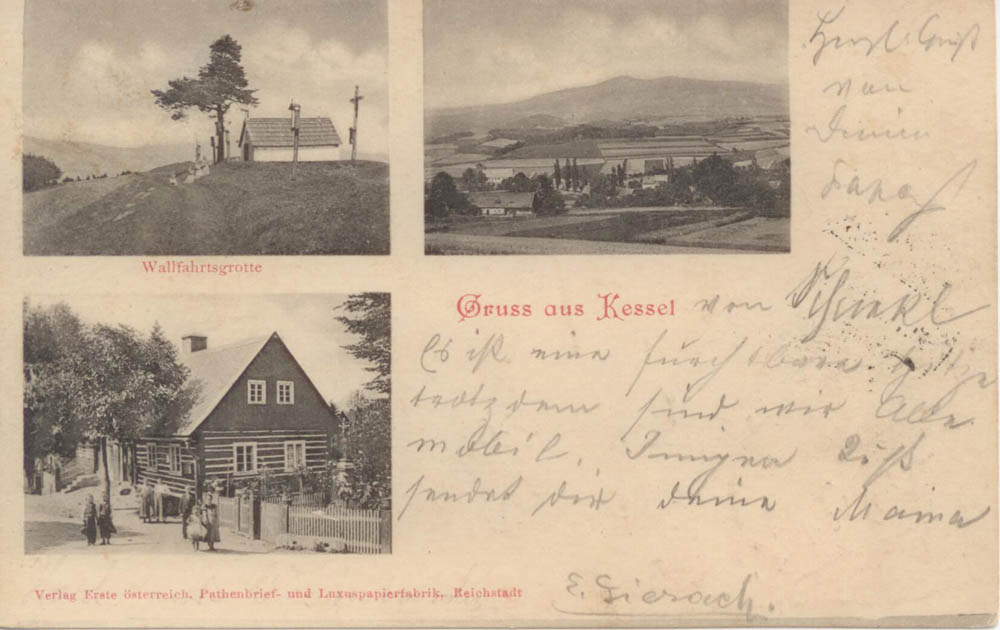 Herzl. Gruß
von
Deinem
Papa
Wallfahrtsgrotte
Gruss aus Kessel von
Es ist eine furchtbare Hitze
trotzdem sind wir Alle
mobil. Innigen Kuß
sendet dir deine Mama
Verlag Erste österreich. Pathenbrief- und Luxuspapierfabrik, Reichstadt
E. Gierach.